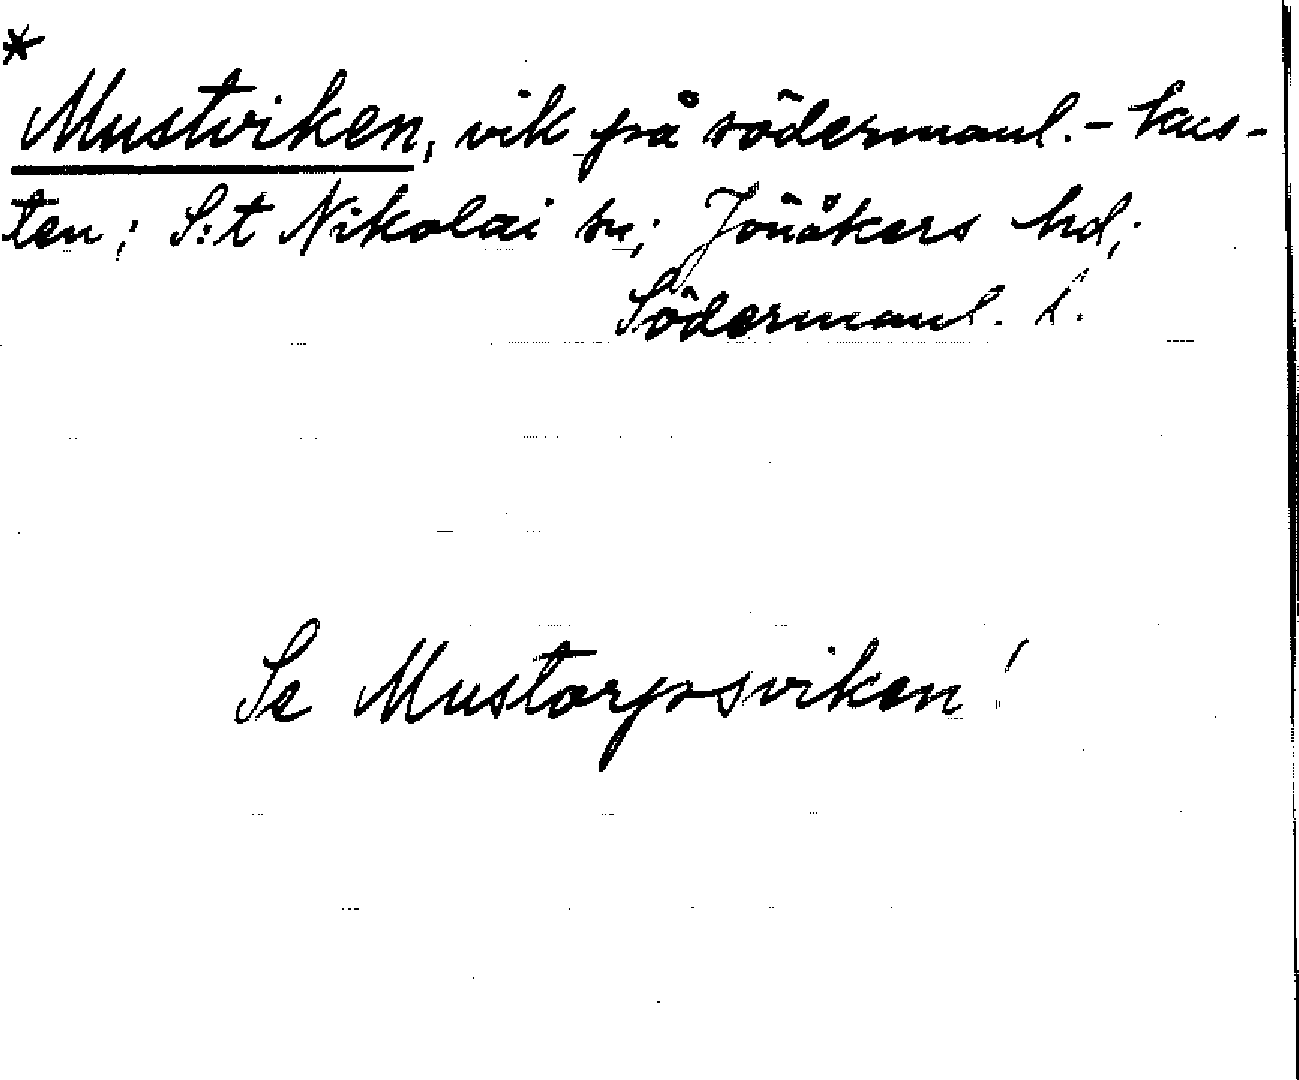 *
Mustviken, vik på södermanl.-kus-
ten; S:t Nikolai sn; Jönåkers hd;
Södermanl. l.
Se Mustorpsviken!